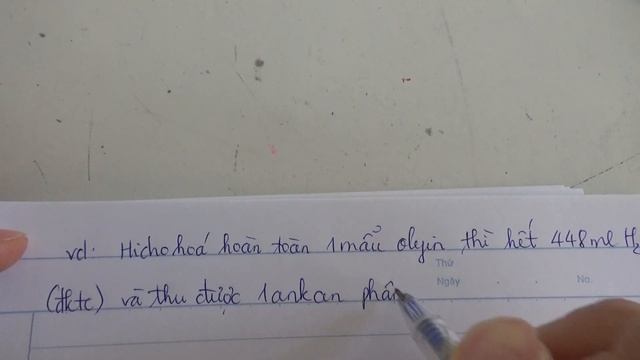 vd: Hiđro hoá hoàn toàn 1 mẩu olefin thì hết 448ml H2
Thứ
Ngày
No.
(đktc) và thu được 1 ankan phân